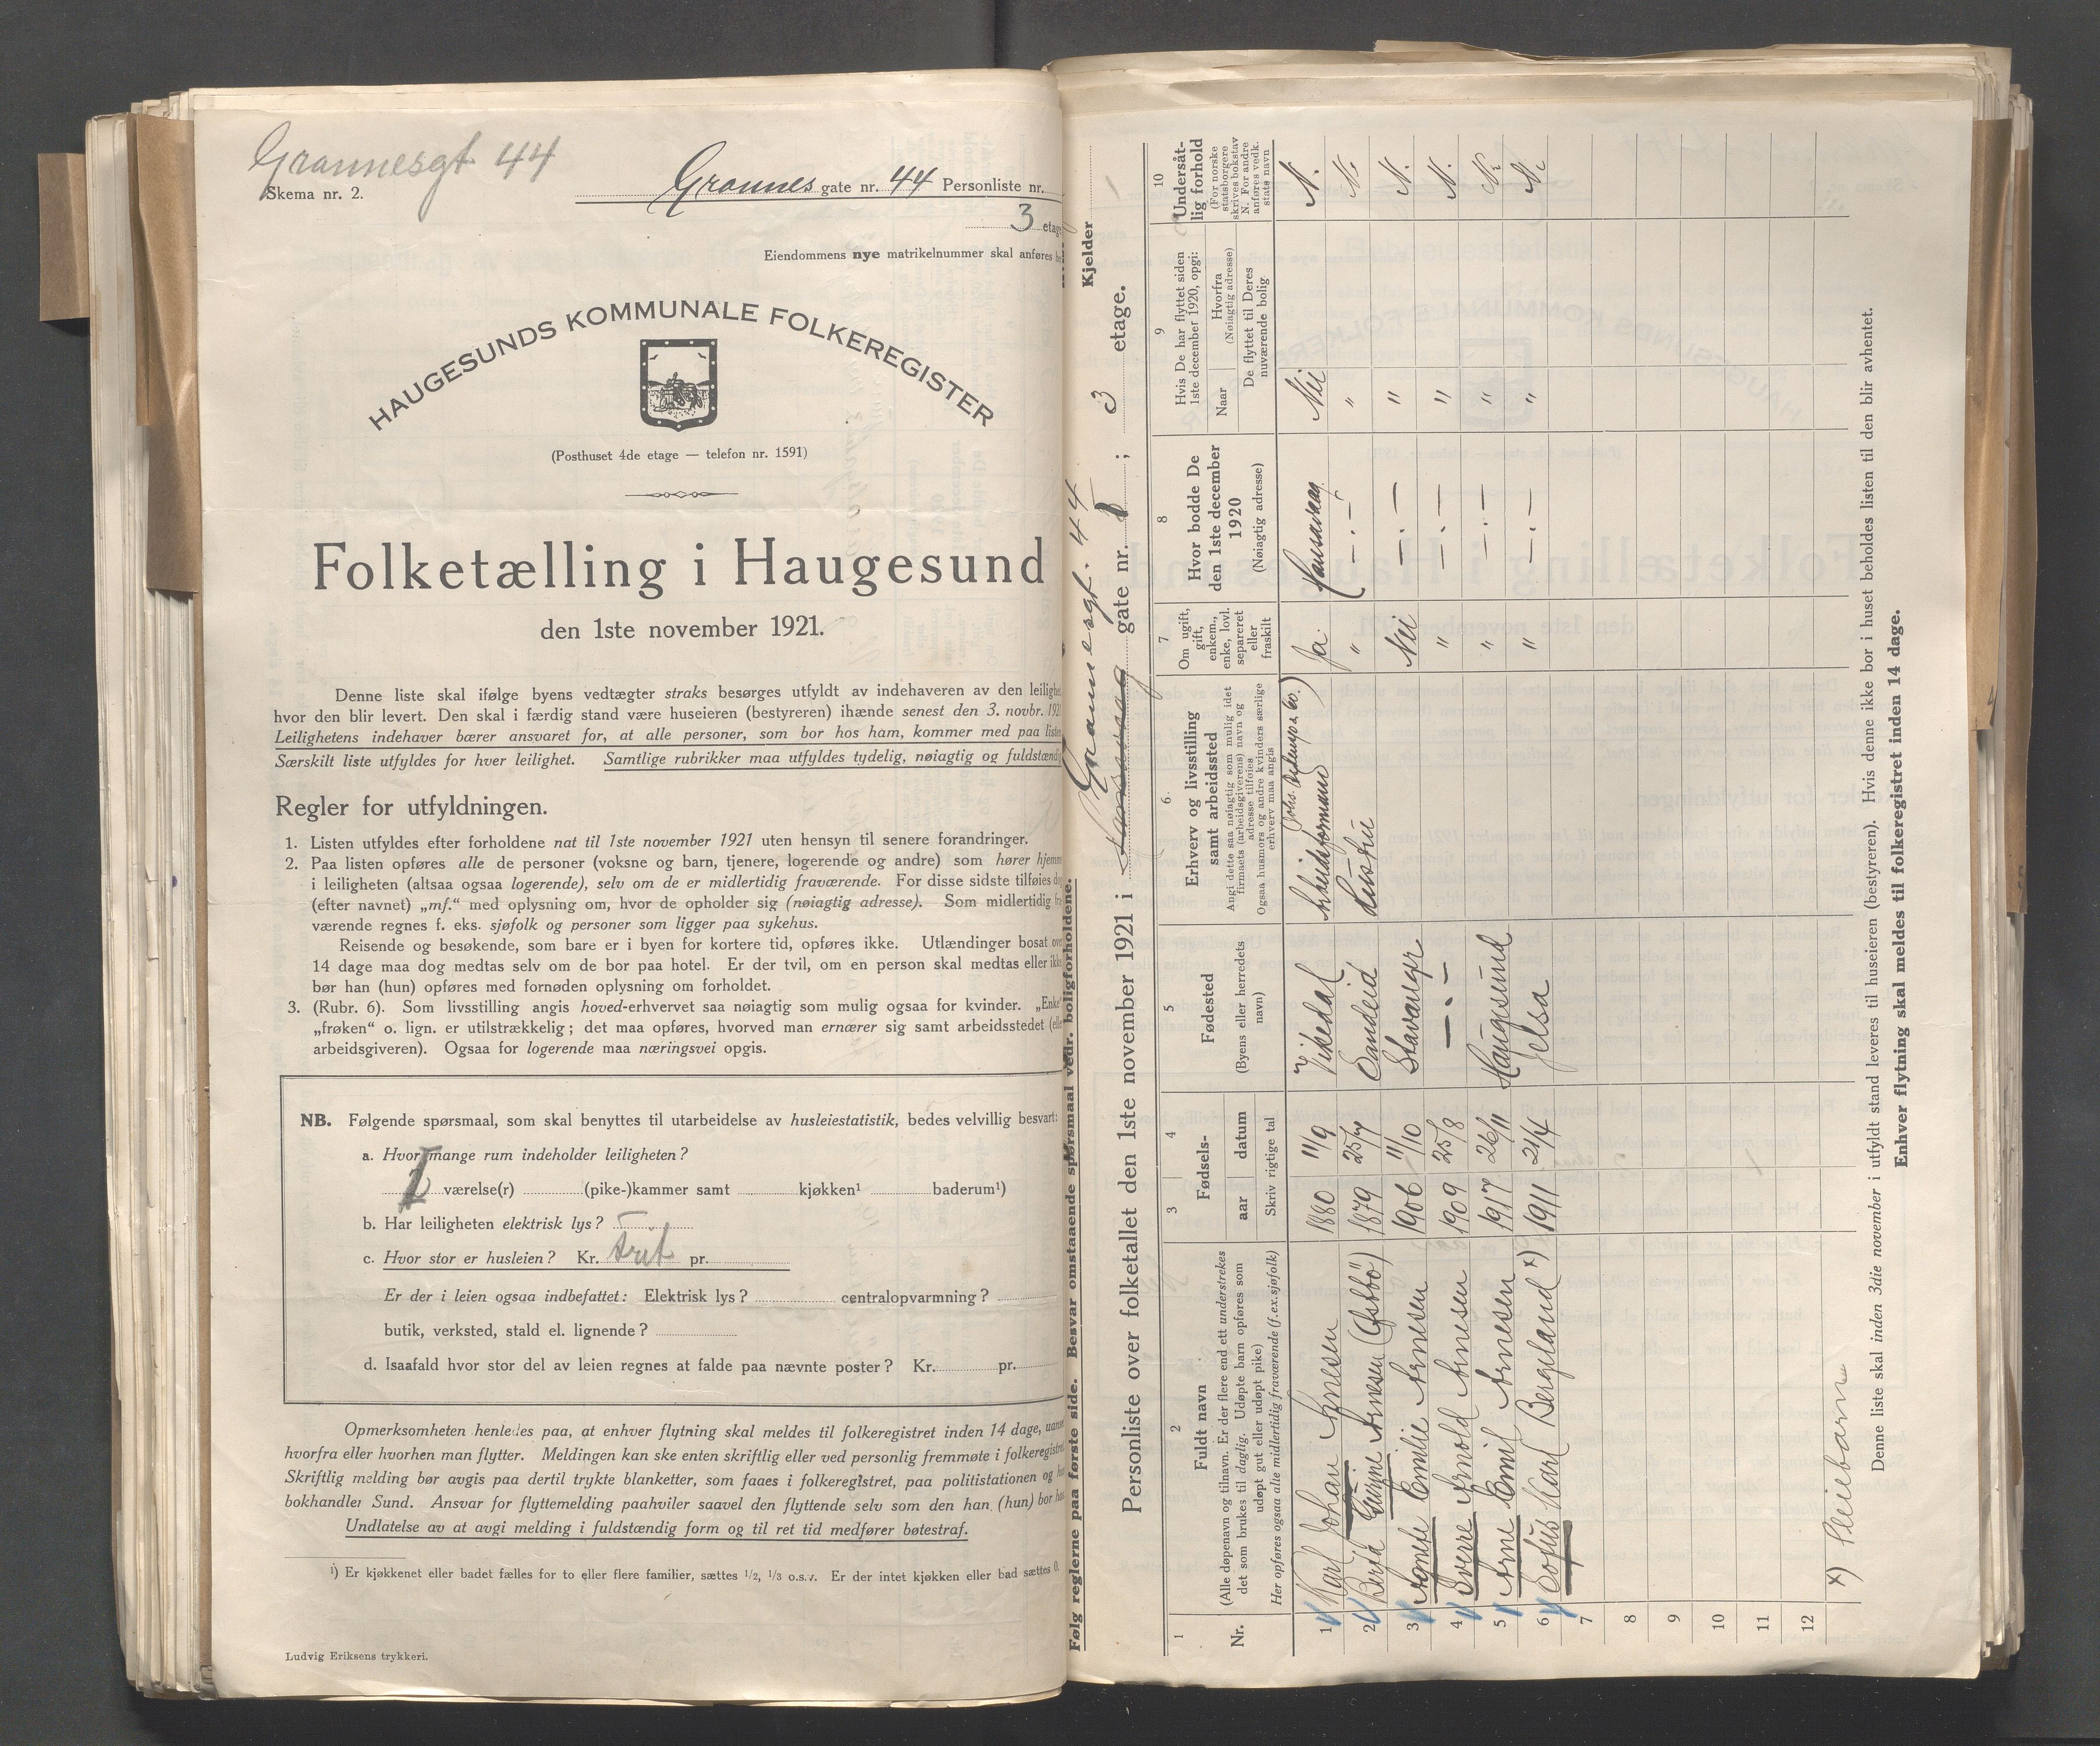 Grannesgt 44
Skema nr. 2.
Grannes gate nr. 44 Personliste nr.
3 etage
Eiendommens nye matrikelnummer skal anføres
HAUGESUNDS KOMMUNALE FOLKEREGISTER
(Posthuset 4de etage — telefon nr. 1591)
Folketælling i Haugesund
den 1ste november 1921.
Denne liste skal ifølge byens vedtægter straks besørges utfyldt av indehaveren av den leilighet
hvor den blir levert. Den skal i færdig stand være huseieren (bestyreren) ihænde senest den 3. novbr. 192
Leilighetens indehaver bærer ansvaret for, at alle personer, som bor hos ham, kommer med paa listen
Særskilt liste utfyldes for hver leilighet. Samtlige rubrikker maa utfyldes tydelig, nøiagtig og fuldstændig
Regler for utfyldningen.
1. Listen utfyldes efter forholdene nat til 1ste november 1921 uten hensyn til senere forandringer.
2. Paa listen opføres alle de personer (voksne og barn, tjenere, logerende og andre) som hører hjemme
i leiligheten (altsaa ogsaa logerende), selv om de er midlertidig fraværende. For disse sidste tilføies da
(efter navnet) „mf.“ med oplysning om, hvor de opholder sig (nøiagtig adresse). Som midlertidig fra
værende regnes f. eks. sjøfolk og personer som ligger paa sykehus.
Reisende og besøkende, som bare er i byen for kortere tid, opføres ikke. Utlændinger bosat over
14 dage maa dog medtas selv om de bor paa hotel. Er der tvil, om en person skal medtas eller ikke
bør han (hun) opføres med fornøden oplysning om forholdet.
3. (Rubr. 6). Som livsstilling angis hoved-erhvervet saa nøiagtig som mulig ogsaa for kvinder. „Enke“
„frøken“ o. lign. er utilstrækkelig; det maa opføres, hvorved man ernærer sig samt arbeidsstedet (elle
arbeidsgiveren). Ogsaa for logerende maa næringsvei opgis.
NB. Følgende spørsmaal, som skal benyttes til utarbeidelse av husleiestatistik, bedes velvillig besvart:
a. Hvor mange rum indeholder leiligheten?
værelse(r) (pike-)kammer samt kjøkken¹ baderum¹)
b. Har leiligheten elektrisk lys?
c. Hvor stor er husleien? Kr. frit pr.
Er der i leien ogsaa indbefattet: Elektrisk lys? centralopvarmning?
butik, verksted, stald el. lignende?
d. Isaafald hvor stor del av leien regnes at falde paa nævnte poster? Kr. pr.
Opmerksomheten henledes paa, at enhver flytning skal meldes til folkeregistret inden 14 dage, uanset
hvorfra eller hvorhen man flytter. Meldingen kan ske enten skriftlig eller ved personlig fremmøte i folkeregistret
Skriftlig melding bør avgis paa dertil trykte blanketter, som faaes i folkeregistret, paa politistationen og hos
bokhandler Sund. Ansvar for flyttemelding paahviler saavel den flyttende selv som den han (hun) bor hos
Undlatelse av at avgi melding i fuldstændig form og til ret tid medfører bøtestraf.
¹) Er kjøkkenet eller badet fælles for to eller flere familier, sættes 1/2, 1/3 o.s.v. Er der intet kjøkken eller bad sættes 0.
Ludvig Eriksens trykkeri.
Følg reglerne paa første side. Besvar omstaaende spørsmaal vedr. boligforholdene.
Kjelder
Grannesgt. 44
Personliste over folketallet den 1ste november 1921 i Hansavaag gate nr. 8 ; 3 etage.
1 2 3 4 5 6. 7 8 9 10
Nr.
Fuldt navn
(Alle døpenavn og tilnavn. Er der flere end ett understrekes
det som brukes til daglig. Udøpte barn opføres som
udøpt gut eller udøpt pike)
Her opføres ogsaa alle midlertidig fraværende (f.ex. sjøfolk)
Fødsels-
aar datum
Skriv rigtige tal
Fødested
(Byens eller herredets
navn)
Erhverv og livsstilling
samt arbeidssted
Angi dette saa nøiagtig som mulig idet
firmaets (arbeidsgiverens) navn og
adresse tilføies
Ogsaa husmors og andre kvinders særlige
erhverv maa angis
Om ugift,
gift,
enkem.,
enke, lovl.
separeret
eller
fraskilt
Hvor bodde De
den 1ste december
1920
(Nøiagtig adresse)
Hvis De har flyttet siden
1ste december 1920, opgi:
Naar Hvorfra
(Nøiagtig adresse)
De flyttet til Deres
nuværende bolig
Undersåt-
lig forhold
(For norske
statsborgere
skrives bokstav
N. For andre
anføres vedk.
stats navn
1 Karl Johan Arnesen 1880 11/9 Vikedal Arbeidsformand Ja. Hansavaag Nei N.
2 Berta Gurine Arnesen (Østbö) 1879 25/7 Sandeid Hustru " —.— " N.
3 Agnes Emilie Arnesen 1906 11/10 Stavanger Nei —.— " N.
4 Sverre Arnold Arnesen 1909 25/8 —.— " —.— " N.
5 Arne Emil Arnesen 1917 26/11 Haugesund " —.— " N.
6 Sofus Karl Bergeland x) 1911 21/4 Jelsa " —.— " N.
7
8
9
10
11
12
x) Pleiebarn
Denne liste skal inden 3die november i utfyldt stand leveres til huseieren (bestyreren). Hvis denne ikke bor i huset beholdes listen til den blir avhentet.
Enhver flytning skal meldes til folkeregistret inden 14 dage.